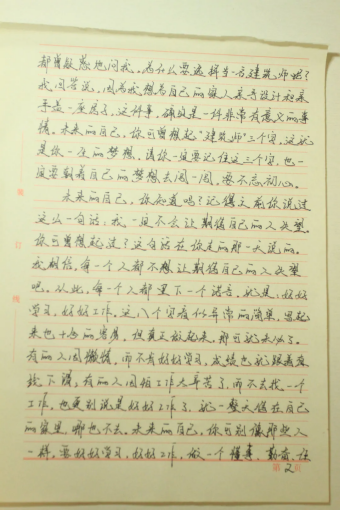 都肯敏感地问我。为什么要选择当一方建筑师呢?
我回答说，因为我想为自己的家人亲手设计和亲
手盖一座房子，这件事，确实是一件非常有意义的事
情。未来的自己，你可曾想起"建筑师"三个字，这就
是你一生的梦想，请你一定要记住这三个字，也一
定要朝着自己的梦想去闯一闯，要不忘初心。
未来的自己，你知道吗?记得之前你说过
这么一句话：我一定不会让期待自己的人失望。
你可曾想起过?这句话在你走的那一天说的。
我相信，每一个人都不想让期待自己的人失望
吧。从此，每一个人都里下一个诺言，就是：好好
学习，好好工作，这八个字看似异常的简单，写起
来也十分的容易，但真正做起来，那可就未必了。
有的人因懒惰，而不去好好学习，成绩也就跟着直
线下滑；有的人因怕工作太辛苦了，而不去找一个
工作，也更别说是好好工作了，就一整天待在自己
的家里，哪也不去。未来的自己，你可别像那些人
一样，要好好学习，好好工作，做一个懂事，勤奋，任
装
订
线
第2页